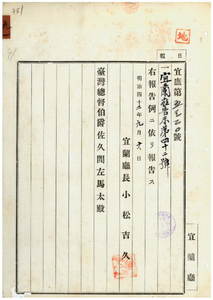 宜廳第 號
一宜蘭廳告示第四十二號
右報告例ニ依リ報告ス
明治四十五年 月 日
宜蘭廳長小松吉久
臺灣總督伯爵佐久間左馬太殿
宜蘭廳